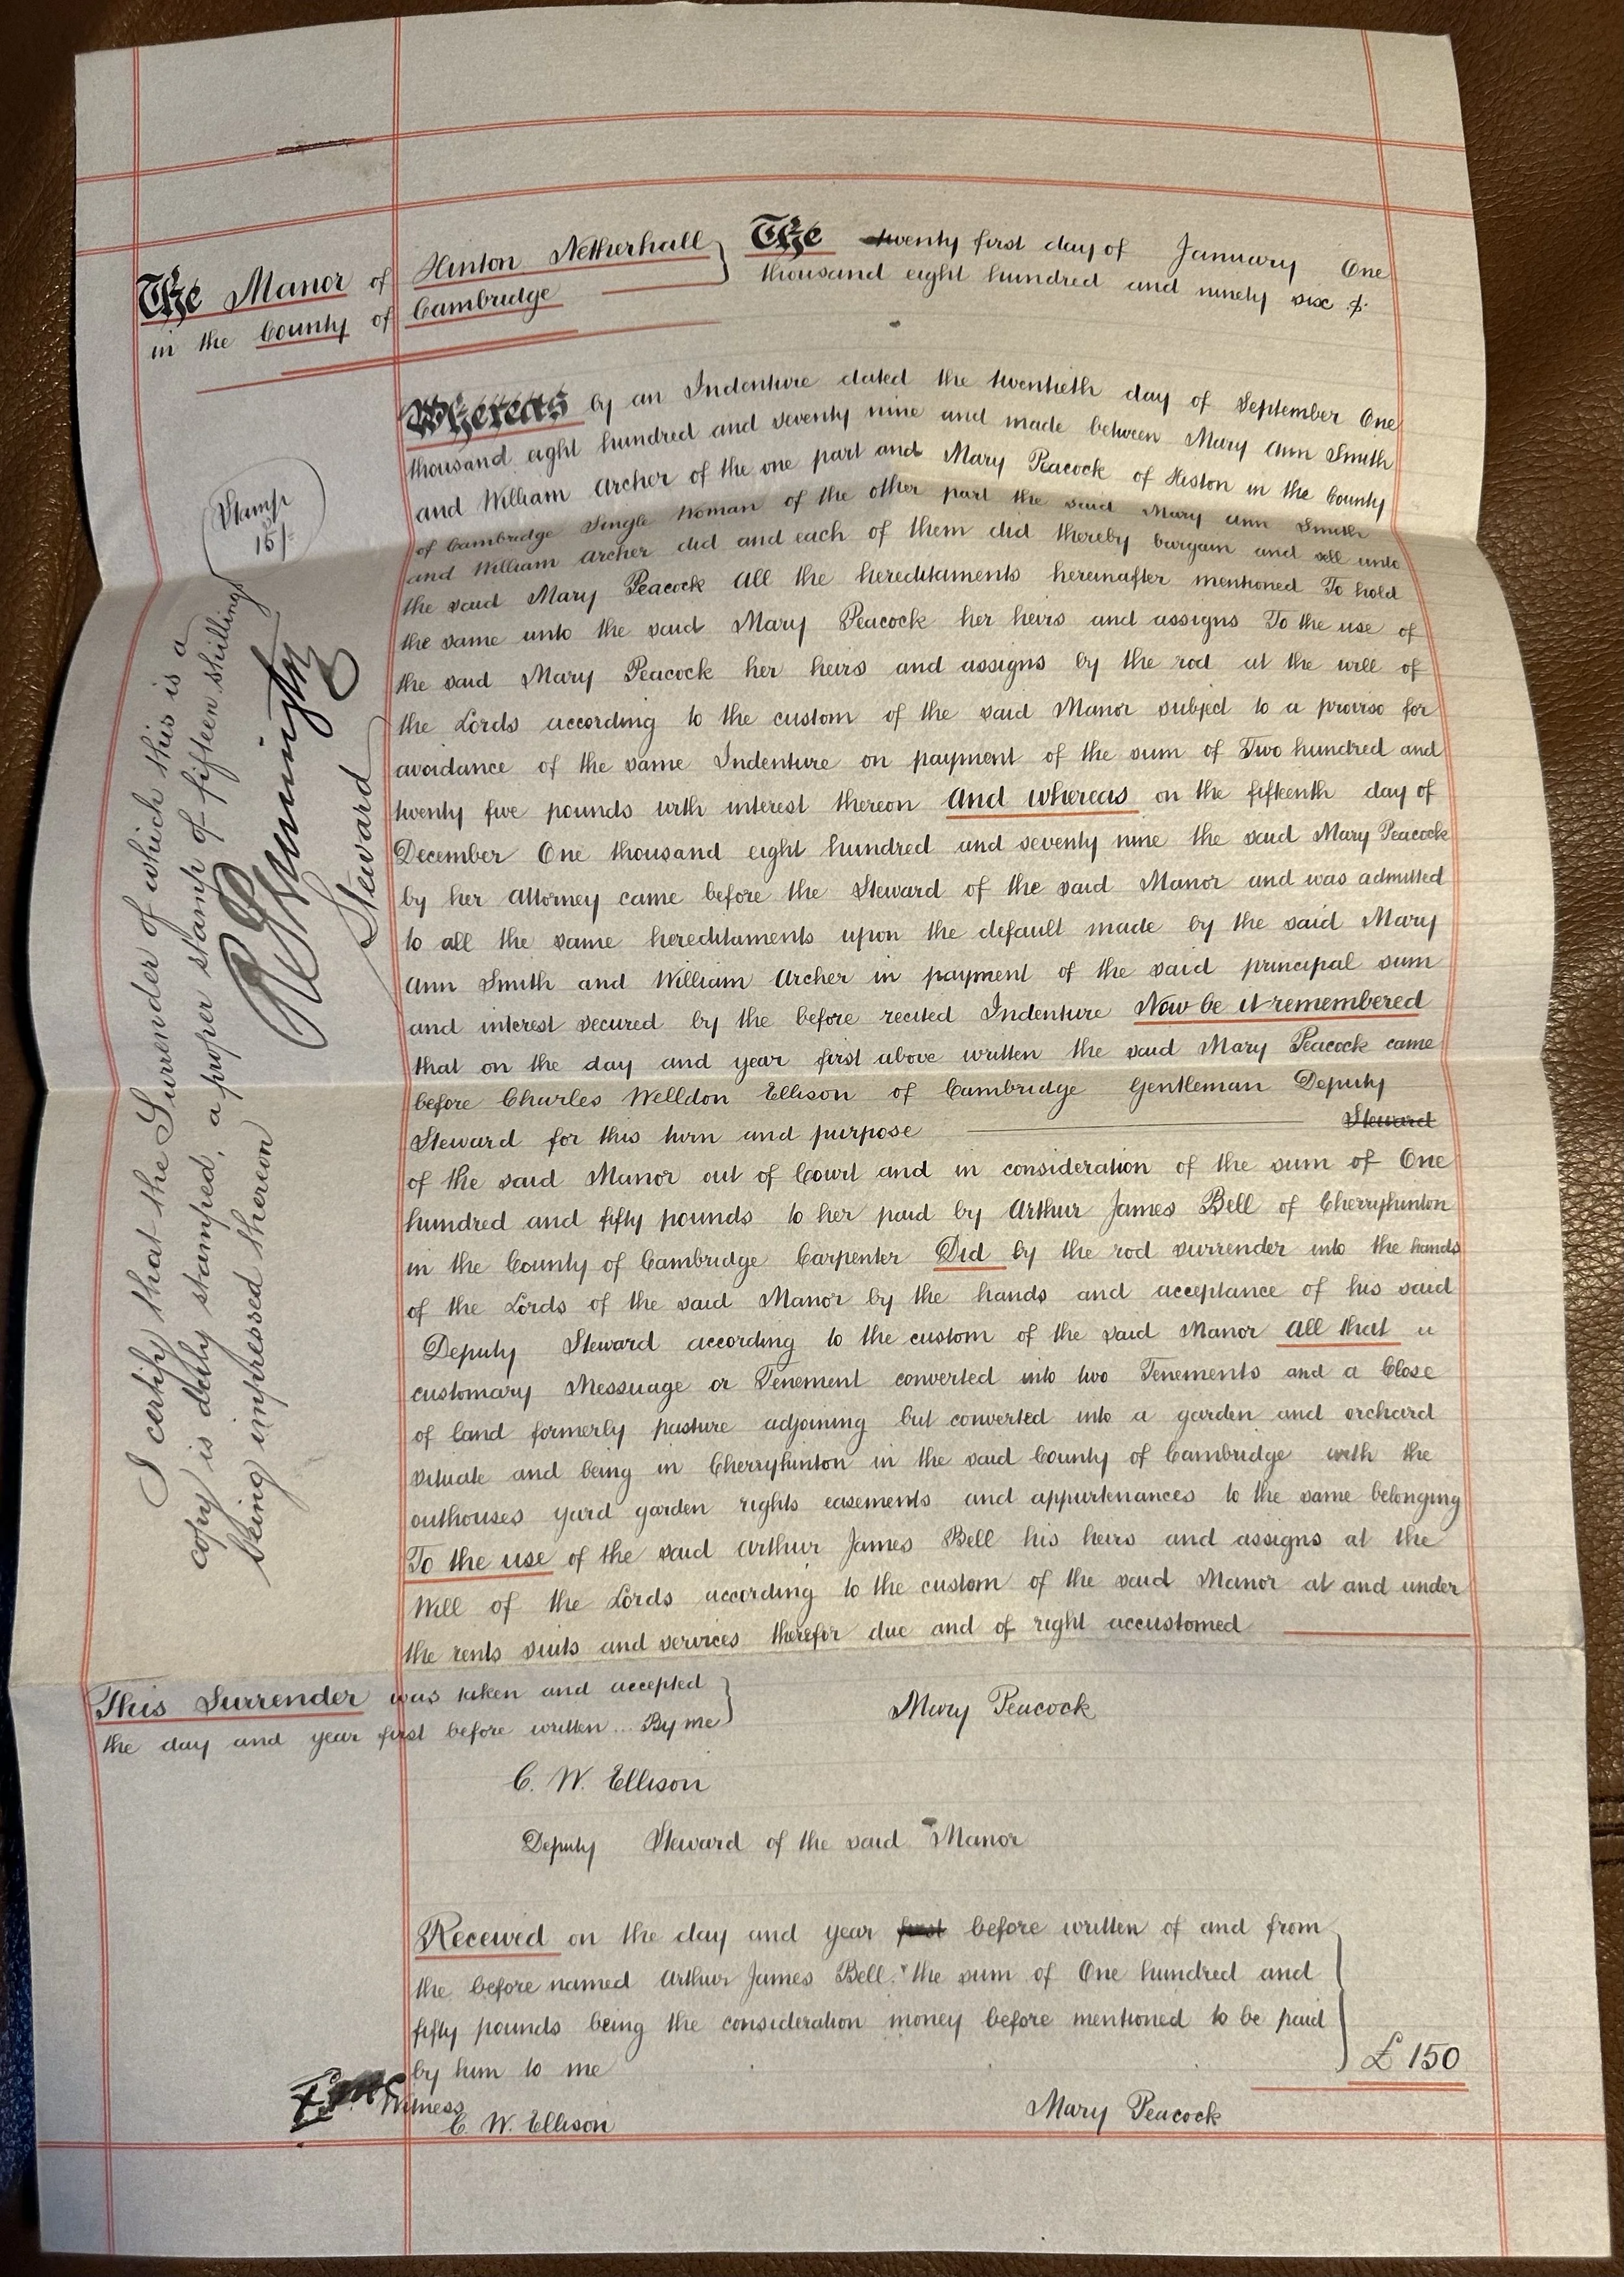 The Manor of Hinton Netherhall
in the County of Cambridge
The twenty first day of January One
thousand eight hundred and ninety six
Whereas by an Indenture dated the twentieth day of September One
thousand eight hundred and seventy nine and made between Mary Ann Smith
and William Archer of the one part and Mary Peacock of Histon in the County
of Cambridge Single Woman of the other part the said Mary Ann Smith
and William Archer did and each of them did thereby bargain and sell unto
the said Mary Peacock All the hereditaments hereinafter mentioned To hold
the same unto the said Mary Peacock her heirs and assigns To the use of
the said Mary Peacock her heirs and assigns by the rod at the will of
the Lords according to the custom of the said Manor subject to a proviso for
avoidance of the same Indenture on payment of the sum of Two hundred and
twenty five pounds with interest thereon And whereas on the fifteenth day of
December One thousand eight hundred and seventy nine the said Mary Peacock
by her Attorney came before the Steward of the said Manor and was admitted
to all the same hereditaments upon the default made by the said Mary
Ann Smith and William Archer in payment of the said principal sum
and interest secured by the before recited Indenture Now be it remembered
that on the day and year first above written the said Mary Peacock came
before Charles Welldon Ellison of Cambridge Gentleman Deputy
Steward for this turn and purpose Steward
of the said Manor out of Court and in consideration of the sum of One
hundred and fifty pounds to her paid by Arthur James Bell of Cherryhinton
in the County of Cambridge Carpenter Did by the rod surrender into the hands
of the Lords of the said Manor by the hands and acceptance of his said
Deputy Steward according to the custom of the said Manor All that a
customary Messuage or Tenement converted into two Tenements and a Close
of land formerly pasture adjoining but converted into a garden and orchard
situate and being in Cherryhinton in the said County of Cambridge with the
outhouses yard garden rights easements and appurtenances to the same belonging
To the use of the said Arthur James Bell his heirs and assigns at the
Will of the Lords according to the custom of the said Manor at and under
the rents suits and services therefor due and of right accustomed
This Surrender was taken and accepted
the day and year first before written... By me
Mary Peacock
C. W. Ellison
Deputy Steward of the said Manor
Received on the day and year first before written of and from
the before named Arthur James Bell the sum of One hundred and
fifty pounds being the consideration money before mentioned to be paid
by him to me
£150
Witness
C. W. Ellison
Mary Peacock
Stamp
15/-
I certify that the Surrender of which this is a
copy is duly stamped, a proper stamp of fifteen shillings
being impressed thereon
Steward